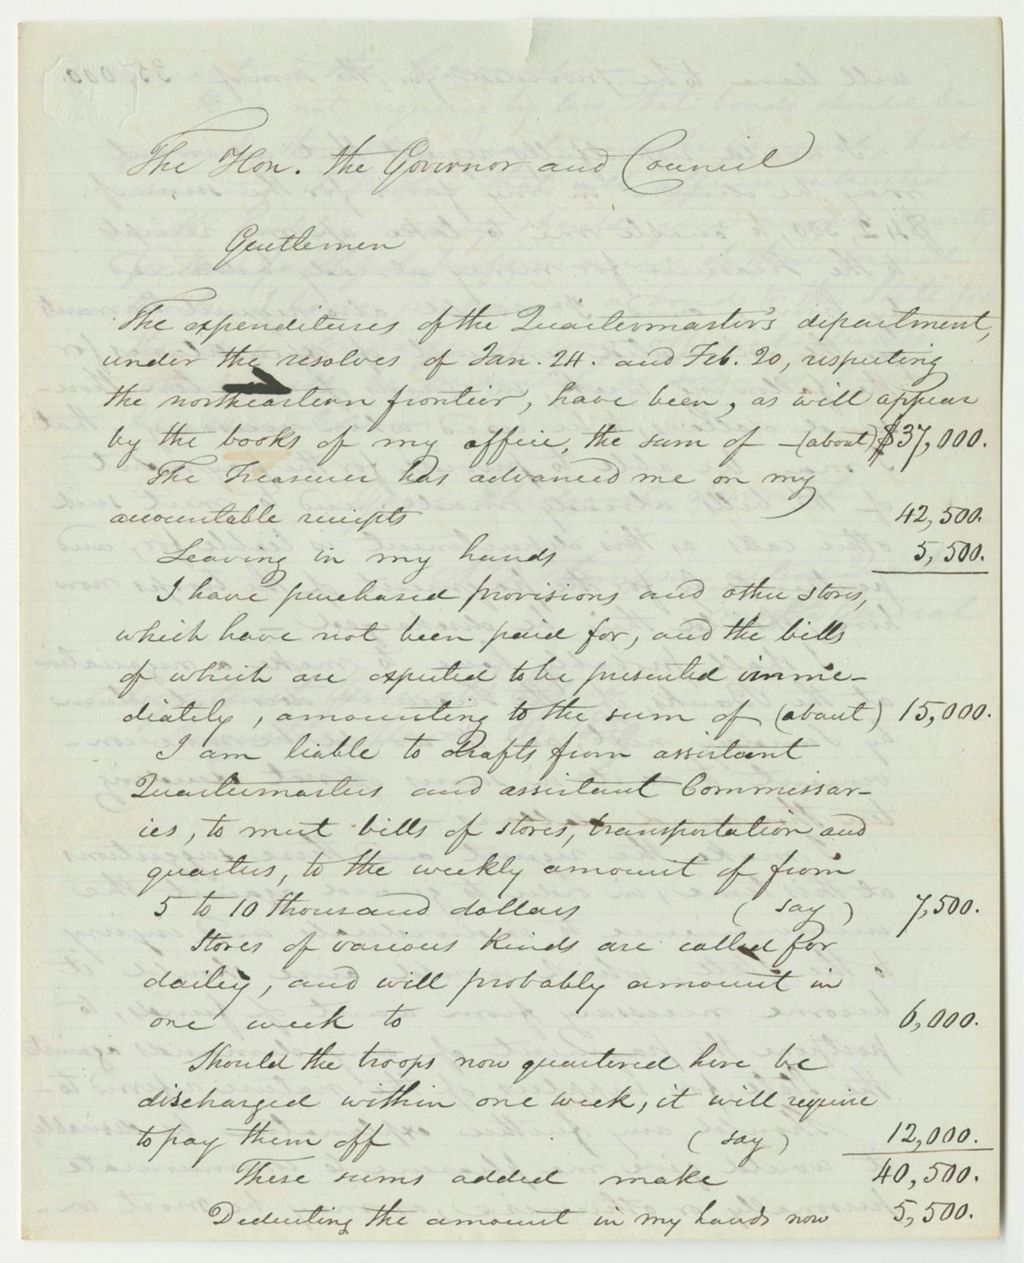 The Hon. the Governor and Council
Gentlemen
The expenditures of the Quartermaster's department,
under the resolves of Jan. 24. and Feb. 20, respecting
the northeastern frontier, have been, as will appear
by the books of my office, the sum of - (about) $37,000.
The Treasurer has advanced me on my
accountable receipts 42,500.
Leaving in my hands 5,500.
I have purchased provisions and other stores,
which have not been paid for, and the bills
of which are expected to be presented imme-
diately, amounting to the sum of (about) 15,000.
I am liable to drafts from assistant
Quartermasters and assistant Commissar-
ies, to meet bills of stores, transportation and
quarters, to the weekly amount of from
5 to 10 thousand dollars (say) 7,500.
Stores of various kinds are called for
daily, and will probably amount in
one week to 6,000.
Should the troops now quartered here be
discharged within one week, it will require
to pay them off (say) 12,000.
These sums added make 40,500.
Deducting the amount in my hands now 5,500.